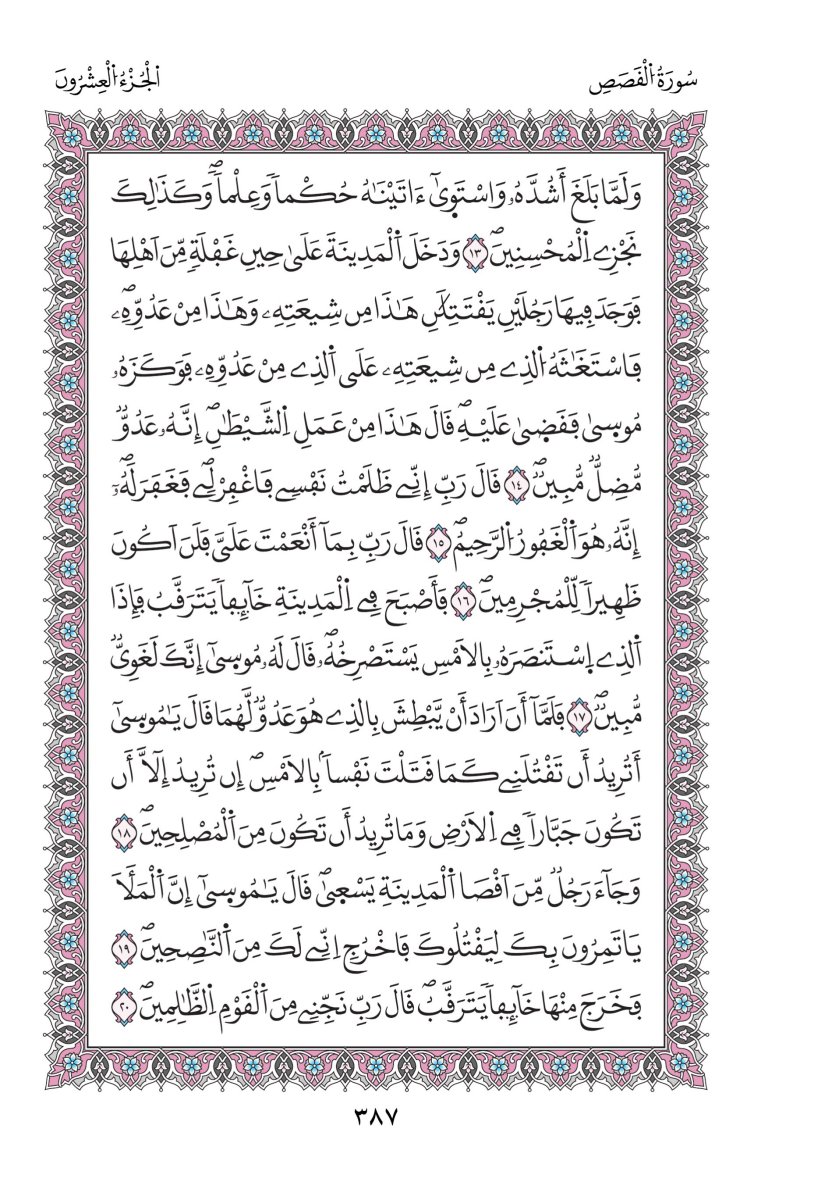 سُورَةُ الْقَصَصِ
اَلْجُزْءُ الْعِشْرُونَ
وَلَمَّا بَلَغَ أَشُدَّهُۥ وَاسْتَوۭيٰٓ ءَاتَيْنَٰهُ حُكْماٗ وَعِلْماٗۖ وَكَذَٰلِكَ
نَجْزِے اِ۬لْمُحْسِنِينَۖ ١٣ وَدَخَلَ اَ۬لْمَدِينَةَ عَلَيٰ حِينِ غَفْلَةٖ مِّنَ اَهْلِهَا
فَوَجَدَ فِيهَا رَجُلَيْنِ يَقْتَتِلَٰنِ هَٰذَا مِن شِيعَتِهِۦ وَهَٰذَا مِنْ عَدُوِّهِۦۖ
فَاسْتَغَٰثَهُ اُ۬لذِے مِن شِيعَتِهِۦ عَلَي اَ۬لذِے مِنْ عَدُوِّهِۦ فَوَكَزَهُۥ
مُوسۭيٰ فَقَضۭيٰ عَلَيْهِۖ قَالَ هَٰذَا مِنْ عَمَلِ اِ۬لشَّيْطَٰنِۖ إِنَّهُۥ عَدُوّٞ
مُّضِلّٞ مُّبِينٞۖ ١٤ قَالَ رَبِّ إِنِّے ظَلَمْتُ نَفْسِے فَاغْفِرْ لِےۖ فَغَفَرَ لَهُۥٓۖ
إِنَّهُۥ هُوَ اَ۬لْغَفُورُ اُ۬لرَّحِيمُۖ ١٥ قَالَ رَبِّ بِمَآ أَنْعَمْتَ عَلَيَّ فَلَنَ اَكُونَ
ظَهِيراٗ لِّلْمُجْرِمِينَۖ ١٦ فَأَصْبَحَ فِے اِ۬لْمَدِينَةِ خَآئِفاٗ يَتَرَقَّبُ فَإِذَا
اَ۬لذِے اِ۪سْتَنصَرَهُۥ بِالَامْسِ يَسْتَصْرِخُهُۥۖ قَالَ لَهُۥ مُوسۭيٰٓ إِنَّكَ لَغَوِيّٞ
مُّبِينٞۖ ١٧ فَلَمَّآ أَنَ اَرَادَ أَنْ يَّبْطِشَ بِالذِے هُوَ عَدُوّٞ لَّهُمَا قَالَ يَٰمُوسۭيٰٓ
أَتُرِيدُ أَن تَقْتُلَنِے كَمَا قَتَلْتَ نَفْساَۢ بِالَامْسِۖ إِن تُرِيدُ إِلَّآ أَن
تَكُونَ جَبَّاراٗ فِے اِ۬لَارْضِ وَمَا تُرِيدُ أَن تَكُونَ مِنَ اَ۬لْمُصْلِحِينَۖ ١٨
وَجَآءَ رَجُلٞ مِّنَ اَقْصَا اَ۬لْمَدِينَةِ يَسْعۭيٰۖ قَالَ يَٰمُوسۭيٰٓ إِنَّ اَ۬لْمَلَأَ
يَاتَمِرُونَ بِكَ لِيَقْتُلُوكَ فَاخْرُجِ اِنِّے لَكَ مِنَ اَ۬لنَّٰصِحِينَۖ ١٩
فَخَرَجَ مِنْهَا خَآئِفاٗ يَتَرَقَّبُۖ قَالَ رَبِّ نَجِّنِے مِنَ اَ۬لْقَوْمِ اِ۬لظَّٰلِمِينَۖ ٢٠
٣٨٧